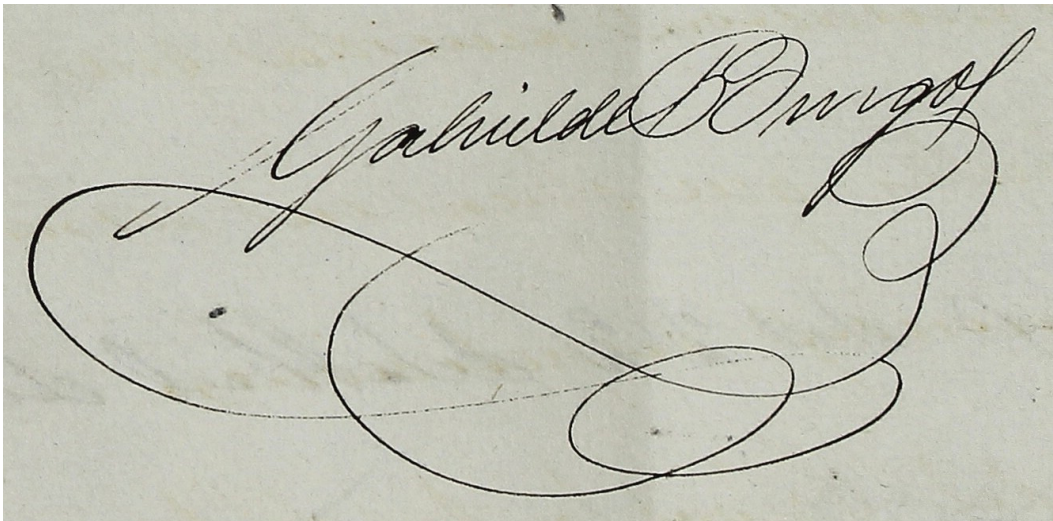 Gabriel de Burgos